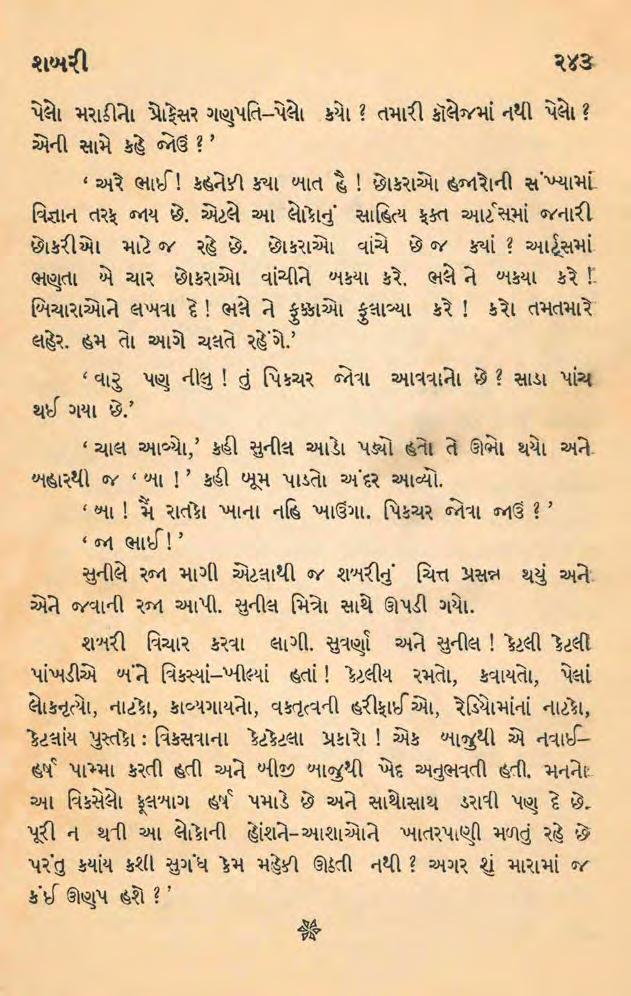 શબરી ૨૪૩
પેલો મરાઠીનો પ્રોફેસર ગણપતિ–પેલો કયો ? તમારી કૉલેજમાં નથી પેલો ?
એની સામે કહે જોઉં ?’
‘ અરે ભાઈ! કહનેકી ક્યા બાત હૈ ! છોકરાઓ હજારોની સંખ્યામાં
વિજ્ઞાન તરફ જાય છે. એટલે આ લોકોનું સાહિત્ય ફક્ત આર્ટસમાં જનારી
છોકરીઓ માટે જ રહે છે. છોકરાઓ વાંચે છે જ ક્યાં ? આર્ટ્સમાં
ભણતા બે ચાર છોકરાઓ વાંચીને બકયા કરે. ભલે ને બકયા કરે !
બિચારાઓને લખવા દે ! ભલે ને ફુક્કાઓ ફુલાવ્યા કરે ! કરો તમતમારે
લહેર. હમ તો આગે ચલતે રહેંગે.’
‘ વારુ પણ નીલુ ! તું પિકચર જોવા આવવાનો છે ? સાડા પાંચ
થઈ ગયા છે.’
‘ ચાલ આવ્યો,’ કહી સુનીલ આડો પડ્યો હતો તે ઊભો થયો અને
બહારથી જ ‘ બા ! ’ કહી બૂમ પાડતો અંદર આવ્યો.
‘ બા ! મૈં રાતકો ખાના નહિ ખાઉંગા. પિકચર જોવા જાઉં ? ’
‘ જા ભાઈ ! ’
સુનીલે રજા માગી એટલાથી જ શબરીનું ચિત્ત પ્રસન્ન થયું અને
એને જવાની રજા આપી. સુનીલ મિત્રો સાથે ઊપડી ગયો.
શબરી વિચાર કરવા લાગી. સુવર્ણા અને સુનીલ ! કેટલી કેટલી
પાંખડીએ બંને વિકસ્યાં–ખીલ્યાં હતાં ! કેટલીય રમતો, કવાયતો, પેલાં
લોકનૃત્યો, નાટકો, કાવ્યગાયનો, વક્તૃત્વની હરીફાઈઓ, રેડિયોમાંનાં નાટકો,
કેટલાંય પુસ્તકો : વિકસવાના કેટકેટલા પ્રકારો ! એક બાજુથી એ નવાઈ–
હર્ષ પામ્યા કરતી હતી અને બીજી બાજુથી ખેદ અનુભવતી હતી. મનનો
આ વિકસેલો ફૂલબાગ હર્ષ પમાડે છે અને સાથોસાથ ડરાવી પણ દે છે.
પૂરી ન થતી આ લોકોની હોંશને–આશાઓને ખાતરપાણી મળતું રહે છે
પરંતુ કયાંય કશી સુગંધ કેમ મહેકી ઊઠતી નથી ? અગર શું મારામાં જ
કંઈ ઊણપ હશે ? ’